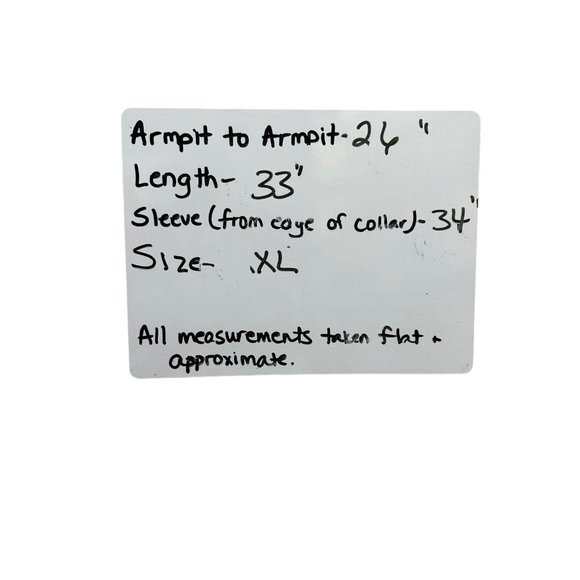 Armpit to Armpit- 26"
Length- 33"
Sleeve (from edge of collar)- 34"
Size- XL
All measurements taken flat &
approximate.